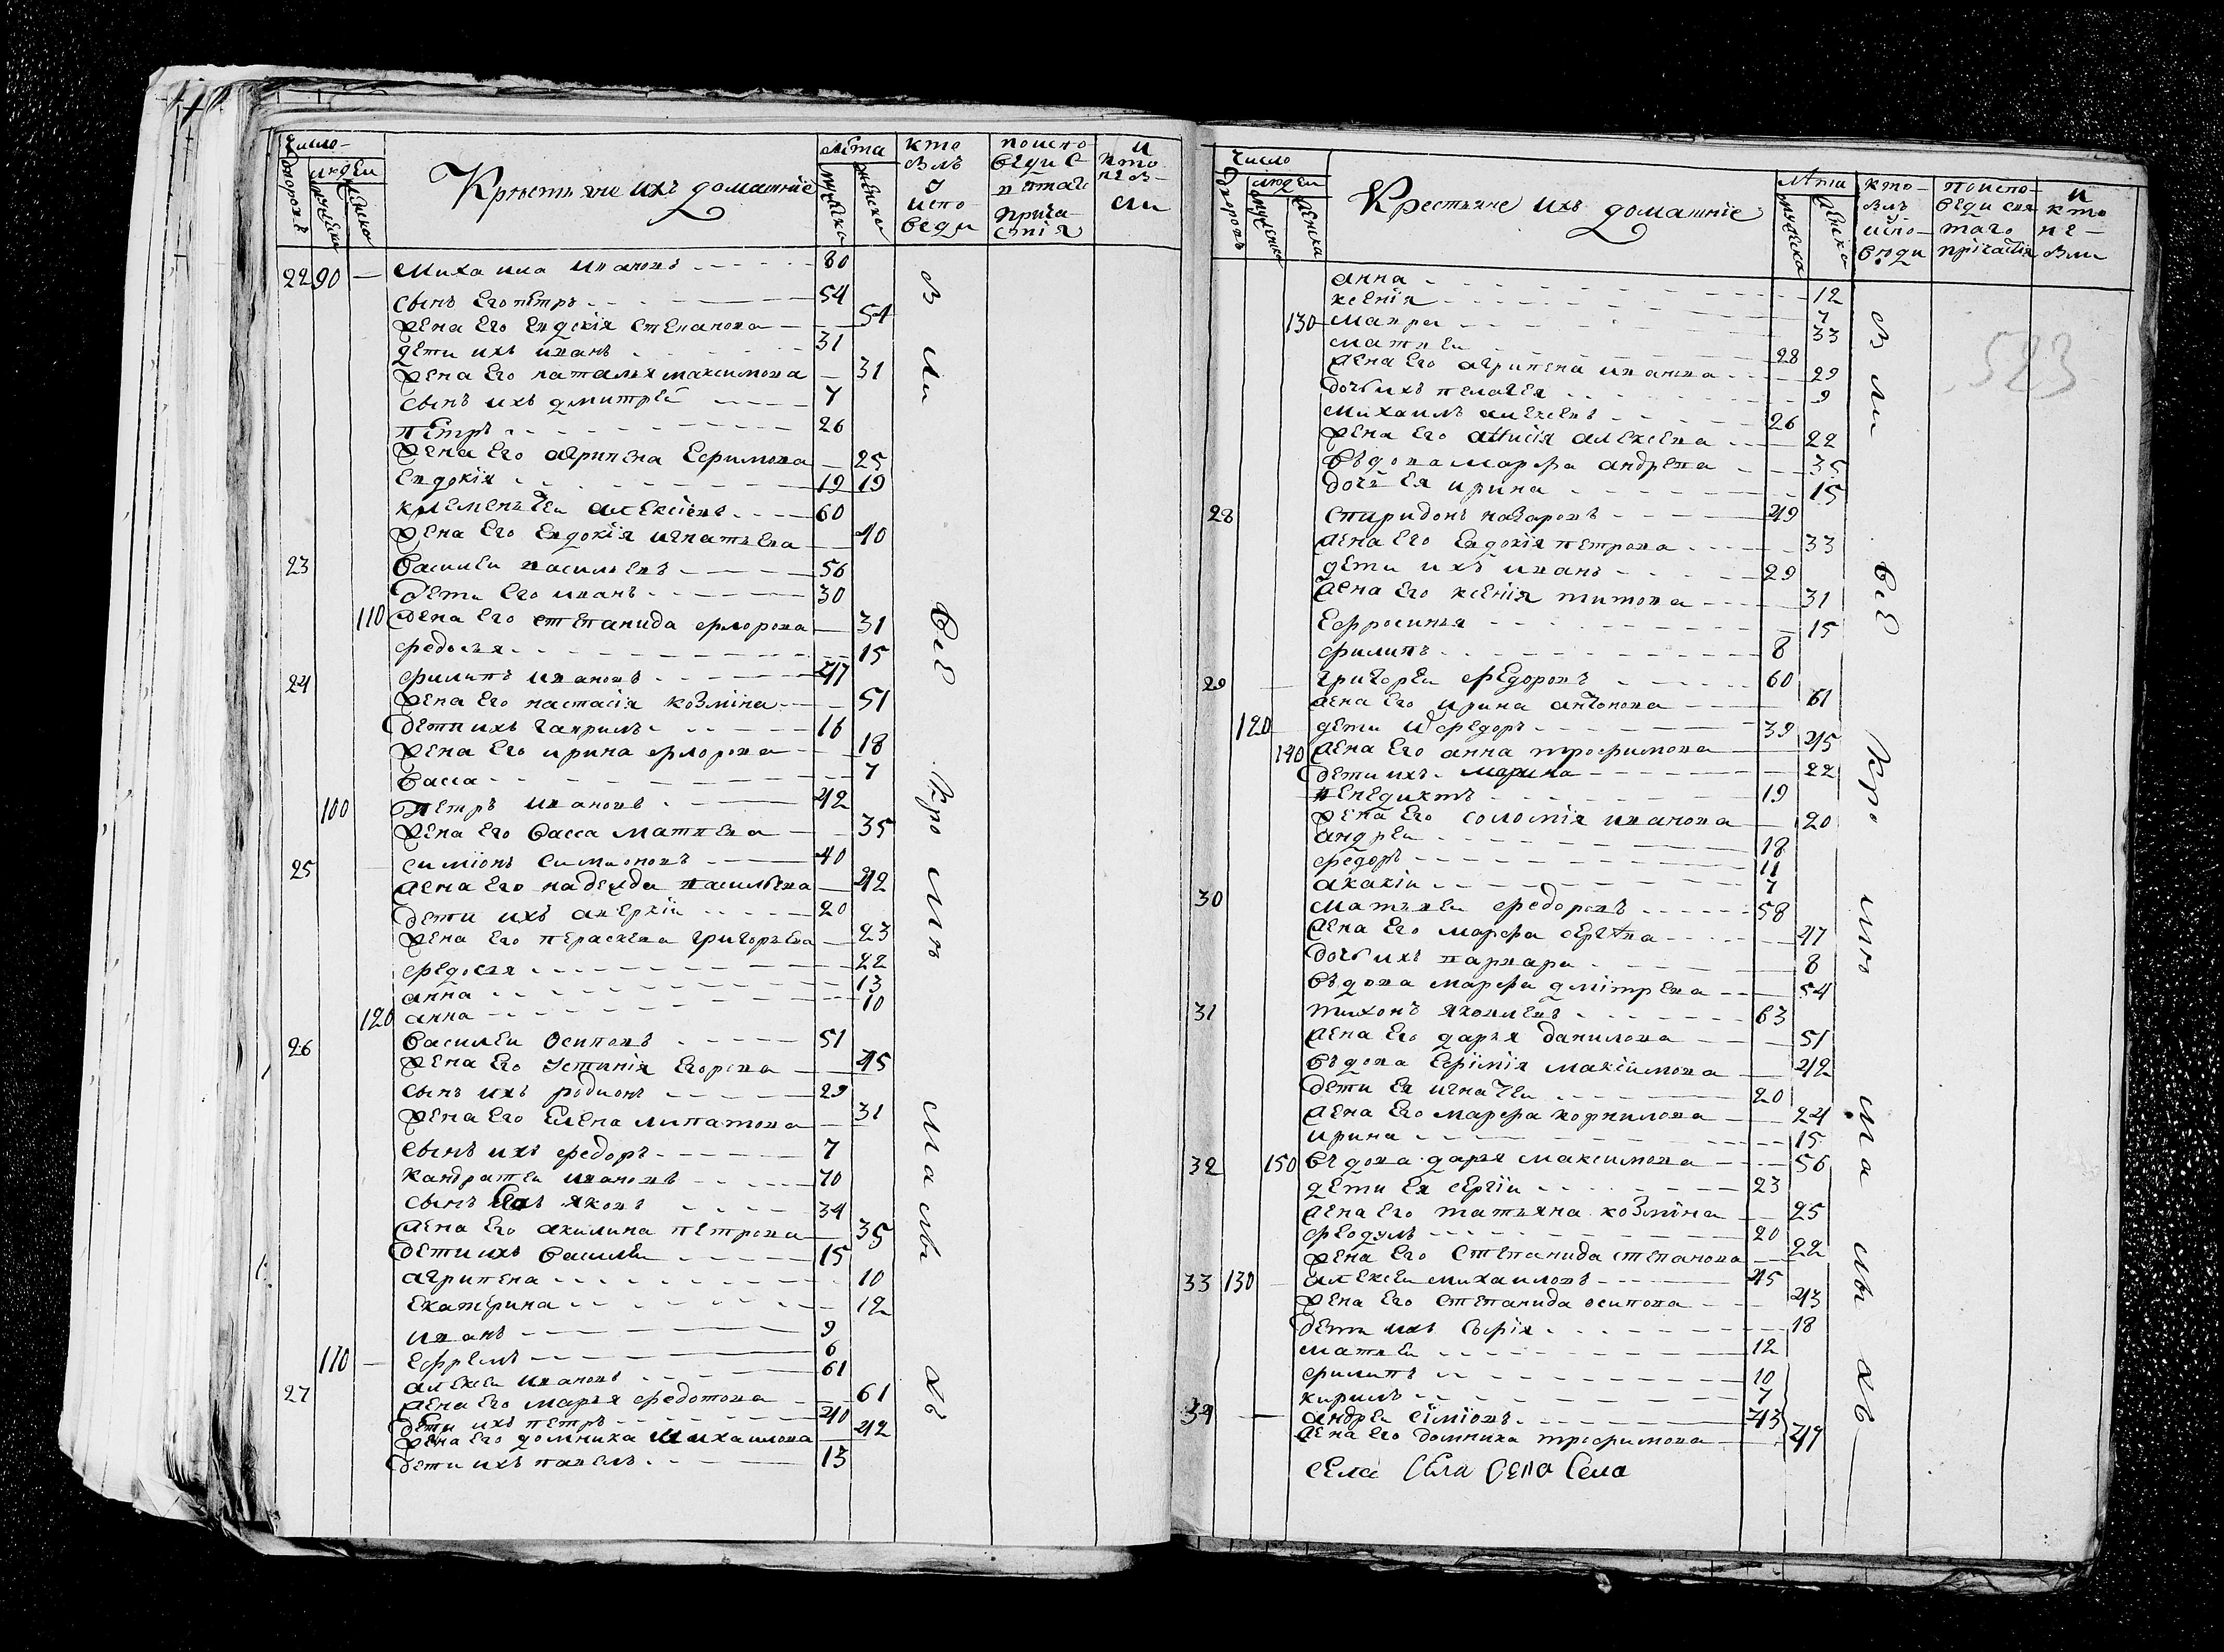 число
людей
Крестьяне ихъ домашніе
лѣта
кто
былъ
у
испо
веди
поиспо
веди с
н таго
прича
стія
и
кто
не в
сли
22 90 — Михаила Ивановъ 80
сынъ Его пЕтръ 54
жена Его Евдокія Степанова 54
дети ихъ иванъ 31
жена Его наталья максимова 31
сынъ ихъ дмитрей 7
пЕтръ 26
жена Его агрипЕна Ефимова 25
Евдокія 19 19
клЕмЕнътЕи алЕксіевъ 60
жена Его Евдокія игнатьЕва 40
23 василЕи васильЕвъ 56
дети Его иванъ 30
110 жена Его стЕпанида флорова 31
федосья 15
24 филипъ ивановъ 47
жена Его настасія козміна 51
дети ихъ гаврилъ 16
жена Его ирина флорова 18
васса 7
100 пЕтръ ивановъ 42
жена Его васса матвЕва 35
25 симіонъ симионовъ 40
жена Его надежда васильЕва 42
дети ихъ авЕркіи 20
жена Его пЕраскЕва григорьЕва 23
федосья 22
анна 13
120 анна 10
26 василЕи осиповъ 51
жена Его устинія Егорова 45
сынъ ихъ родионъ 29
жена Его ЕлЕна липатова 31
сынъ ихъ федоръ 7
кандратЕи ивановъ 70
сынъ яковъ 34
жена Его акилина пЕтрова 35
дети ихъ василЕи 15
агрипЕна 10
ЕкатЕрина 12
иванъ 9
110 — ЕфрЕмъ 6
27 алЕксЕи ивановъ 61
жена Его марья федотова 61
дети ихъ пЕтръ 40
жена Его домника михаилова 42
дети ихъ павЕлъ 13
число
людеи
Крестьяне ихъ домашніе
лѣта
кто
былъ
у
испо
веди
поиспо
веди свя
таго
прічастія
и
кто
не
анна 12
ксЕнія 7
130 мавра 33
матвЕи 28
жена Его агрипЕна иванова 29
дочь ихъ пЕлагЕя 9
михаилъ алЕксЕвъ 26
жена Его алЕксЕва 22
въдова марфа андрЕва 35
дочь Ея ирина 15
28 спиридонъ назаровъ 49
жена Его Евдокія пЕтрова 33
дети ихъ иванъ 29
жена Его ксЕнія титова 31
Ефросинья 15
филипъ 8
29 — григорЕи фЕдоровъ 60
жена Его ирина антонова 61
120 дети федоръ 39
140 жена Его анна трофимова 45
дети ихъ марина 22
вЕнЕдиктъ 19
жена Его соломія иванова 20
андрЕи 18
федоръ 11
акакіи 7
30 матвЕи федоровъ 58
жена Его марфа сЕргЕва 47
дочь ихъ варвара 8
въдова марфа дмітрЕва 54
31 тихонъ яковлЕвъ 63
жена Его дарья данилова 51
въдова Ефімія максімова 42
дети Ея игнатЕи 20
жена Его марфа корнилова 24
ирина 15
32 150 въдова дарья максимова 56
дети Ея сЕргіи 23
жена Его татьяна козміна 25
феодулъ 20
жена Его стЕпанида стЕпанова 22
33 130 алЕксЕи михаиловъ 45
жена Его стЕпанида осипова 43
дети ихъ софія 18
матвЕи 12
филипъ 10
кирилъ 7
34 — андрЕи сіміовъ 43
жена Его домника трофимова 47
сЕла сЕла сЕла села
523